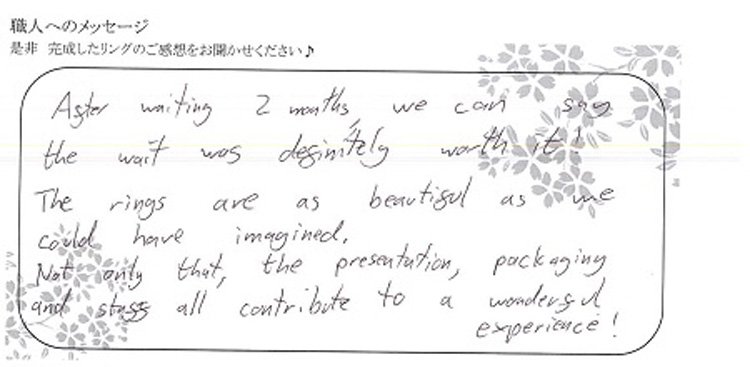 職人へのメッセージ
是非 完成したリングのご感想をお聞かせください♪
After waiting 2 months, we can say
the wait was definitely worth it!
The rings are as beautiful as we
could have imagined.
Not only that, the presentation, packaging
and staff all contribute to a wonderful
experience!